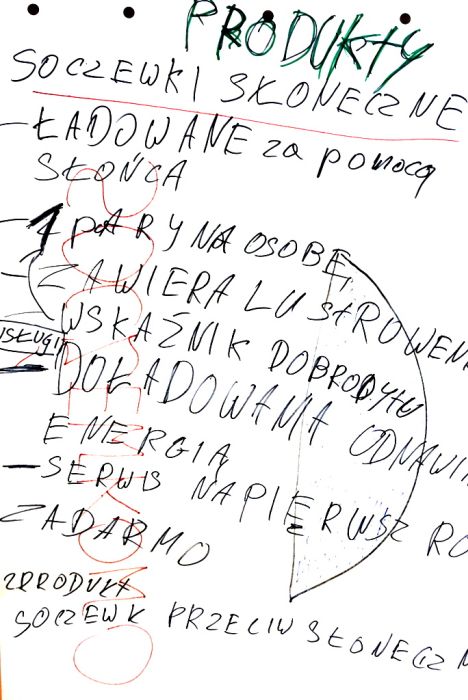 PRODUKTY
SOCZEWKI SŁONECZNE
- ŁADOWANE za pomocą
SŁOŃCA
- 1 pARY NA OSOBĘ
- ZAWIERA LUSTROWE
WSKAŹNIK DOBROBYTU
USŁUGI
DOŁADOWANIA ODNAWIA
ENERGIĄ
- SERWIS NA PIERWSZ RO
ZADARMO
2 PRODUKT
SOCZEWK PRZECIWSŁONECZN